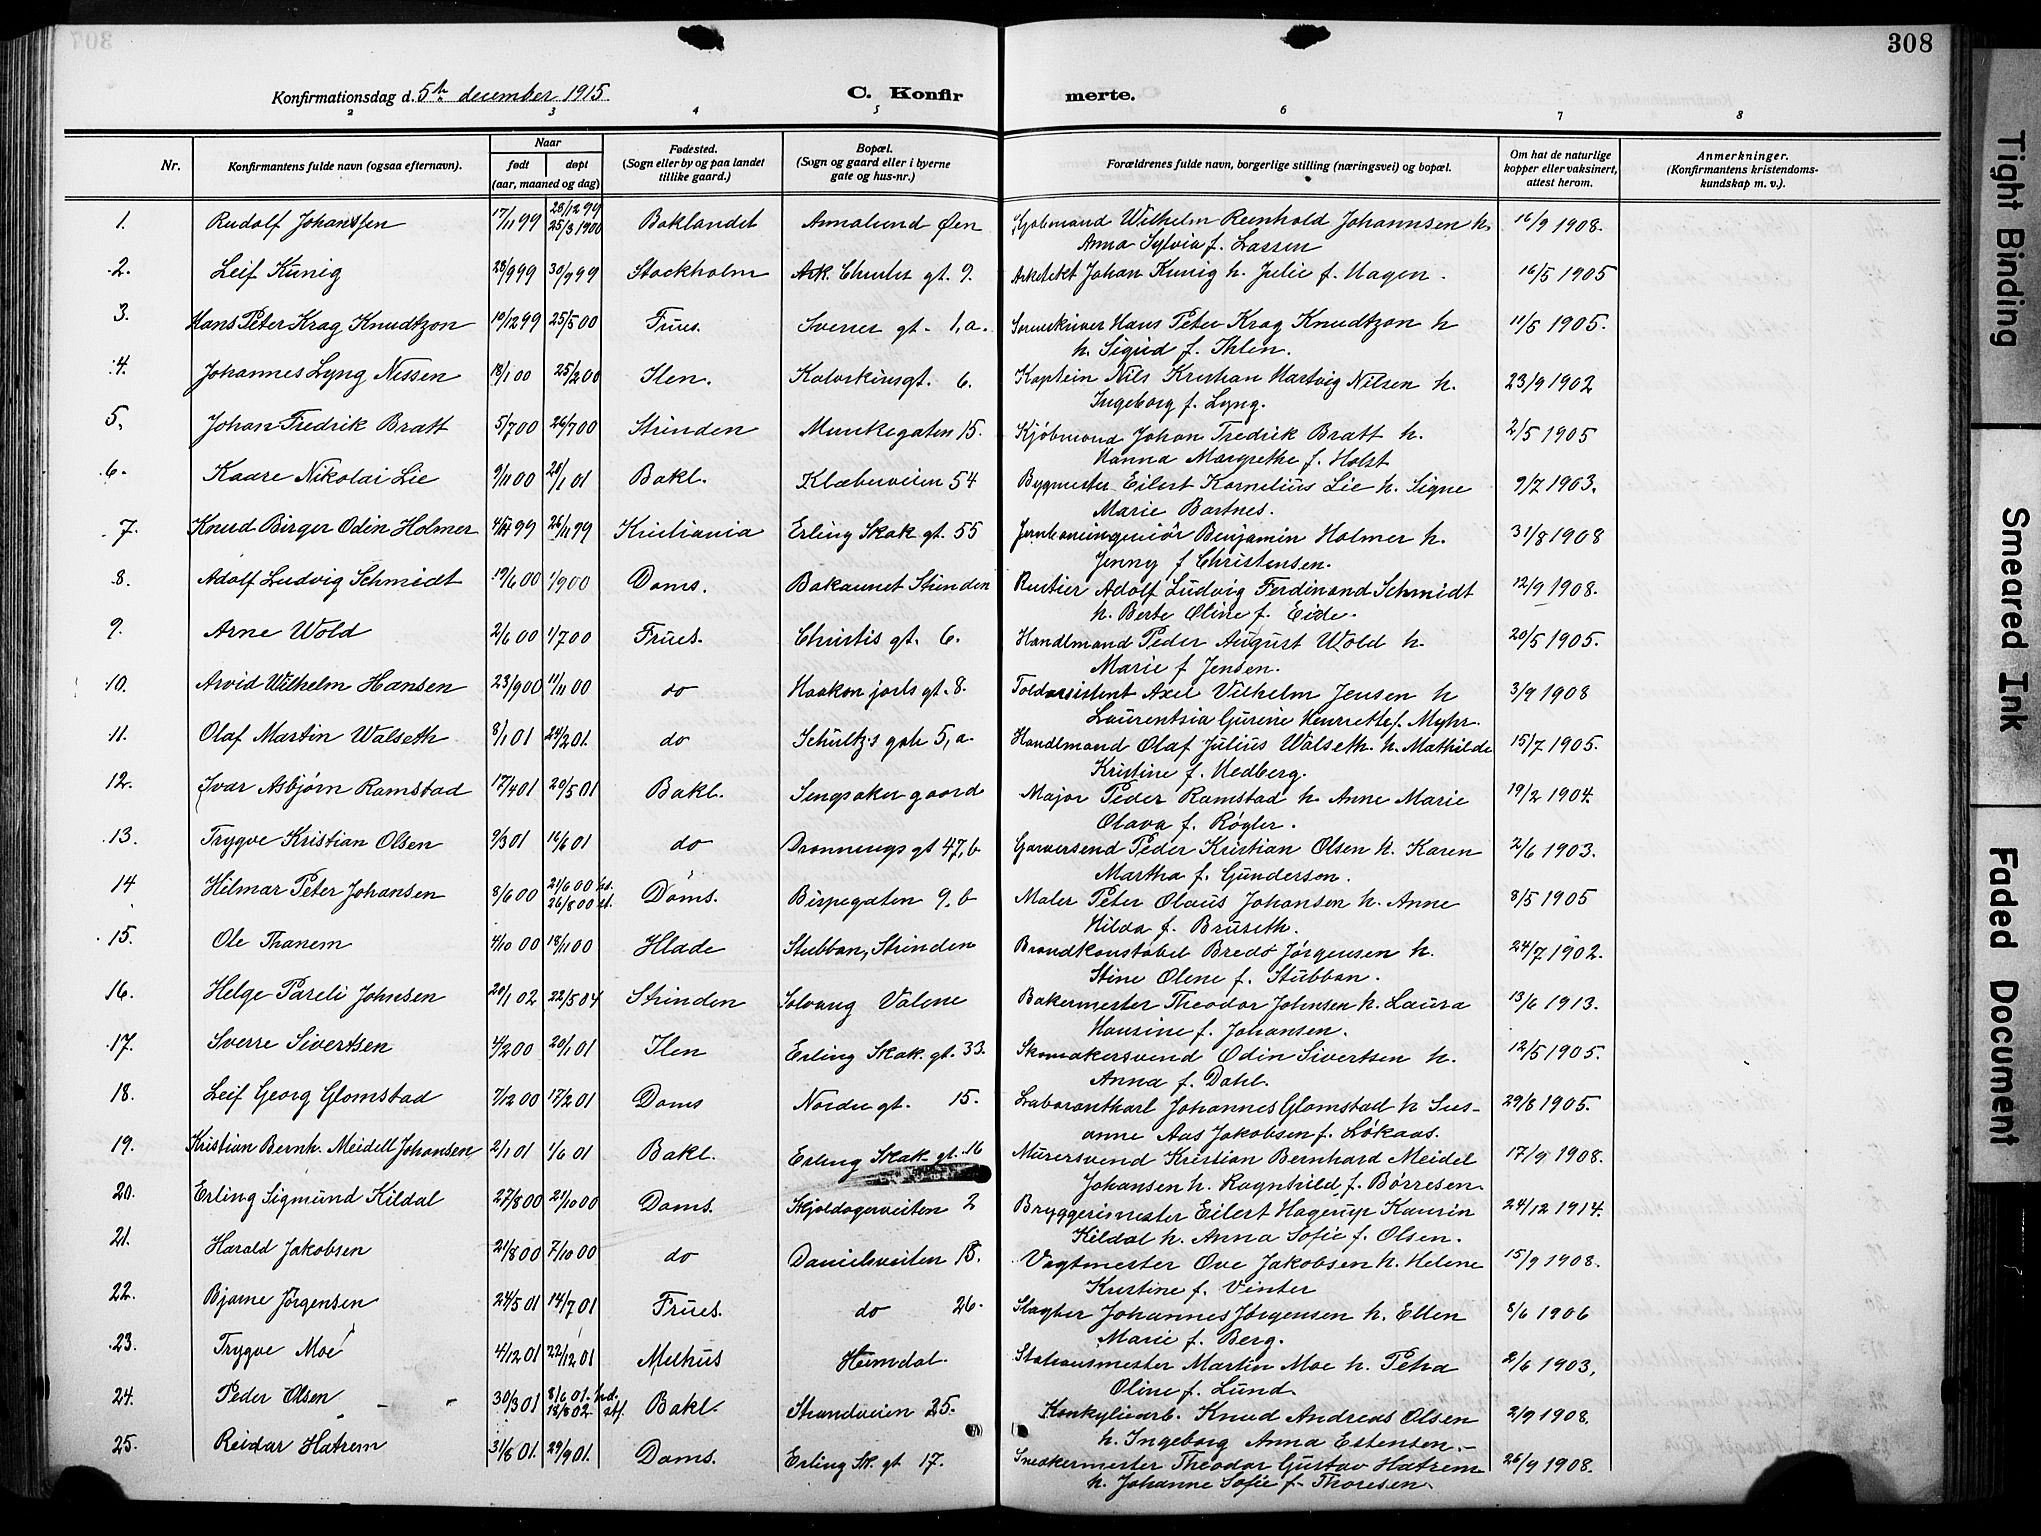 308
Konfirmationsdag d. 5te december 1915
C. Konfir
merte.
2 3 4 5 6 7 8
Nr.
Konfirmantens fulde navn (ogsaa efternavn).
Naar
født
døpt
(aar, maaned og dag)
Fødested.
(Sogn eller by og paa landet
tillike gaard.)
Bopæl.
(Sogn og gaard eller i byerne
gate og hus-nr.)
Forældrenes fulde navn, borgerlige stilling (næringsvei) og bopæl.
Om hat de naturlige
kopper eller vaksinert,
attest herom.
Anmerkninger.
(Konfirmantens kristendoms-
kundskap m. v.).
1. Rudolf Johanssen 17/11 99 28/12 99 25/3 1900 Baklandet Annalund Øen Kjøbmand Wilhelm Reinhold Johannsen h. 16/9 1908.
Anna Sylvia f. Larsen
2. Leif Kunig 28/9 99 30/9 99 Stockholm Ark. Christies gt. 9. Arkitekt Johan Kunig h. Julie f. Hagen. 16/5 1905
3. Hans Peter Krag Knudtzon 19/12 99 25/5 00 Frues. Sverres gt. 1,a. Sorenskriver Hans Peter Krag Knudtzon h 11/5 1905.
h. Sigrid f. Ihlen.
4. Johannes Lyng Nissen 18/1 00 25/2 00 Ilen. Kalvskinsgt. 6. Kaptein Nils Kristian Hartvig Nilsen h. 23/9 1902
Ingeborg f. Lyng.
5. Johan Fredrik Bratt 5/7 00 26/7 00 Strinden Munkegaten 15. Kjøbmand Johan Fredrik Bratt h. 2/5 1905
Hanna Margrethe f. Holst
6. Kaare Nikolai Lie 9/11 00 20/1 01 Bakl. Klæbuveien 54 Bygmester Eilert Kornelius Lie h. Signe 9/7 1903.
Marie Bartnes.
7. Knud Birger Odin Holmer 99 26/11 99 Kristiania Erling Skak gt. 55 Jernbaneingeniør Benjamin Holmer h. 31/8 1908
Jenny f Christensen.
8. Adolf Ludvig Schmidt 19/6 00 1/9 00 Doms. Bakaunet Strinden Rentier Adolf Ludvig Ferdinand Schmidt 12/9 1908.
h. Berte Oline f. Eide.
9. Arne Wold 2/6 00 1/7 00 Frues. Christis gt. 6. Handlmand Peder August Wold h. 20/5 1905.
Marie f Jensen.
10. Arvid Wilhelm Hansen 23/9 00 11/11 00 do Haakon jarls gt. 8. Toldassistent Axel Vilhelm Jensen h 3/9 1908
Laurentsia Gurine Henriette f. Myhr.
11. Olaf Martin Walseth 8/1 01 24/2 01. do Schultz's gate 5,a. Handlmand Olaf Julius Walseth h. Mathilde 15/7 1905.
Kristine f. Hedberg.
12. Ivar Asbjørn Ramstad 17/4 01 20/5 01 Bakl. Singsaker gaard Major Peder Ramstad h. Anne Marie 19/2 1904.
Olava f. Røgler.
13. Trygve Kristian Olsen 9/3 01 16/6 01 do Dronnings gt 47,b Garversvend Peder Kristian Olsen h. Karen 2/6 1903.
Martha f. Gundersen.
14 Hilmar Peter Johansen 8/6 00 21/6 00 hd. 26/8 00 st. Doms. Bispegaten 9,b Maler Peter Olaus Johansen h. Anne 8/5 1905
Hilda f. Bruseth.
15. Ole Thanem 4/10 00 18/11 00 Hlade Stubban, Strinden Brandkonstabel Bredo Jørgensen h. 24/7 1902.
Stine Olene f. Stubban.
16. Helge Pareli Johnsen 20/1 02 22/5 04 Strinden Solvang Valene Bakermester Theodor Johnsen h. Laura 13/6 1913.
Hansine f. Johansen.
17. Sverre Sivertsen 4/2 00 20/1 01 Ilen Erling Skak. gt. 33. Skomakersvend Odin Sivertsen h. 12/5 1905.
Anna f. Dahl.
18. Leif Georg Glomstad 7/12 00 17/2 01 Doms Nordre gt. 15. Laborantkarl Johannes Glomstad h Sus- 29/8 1905.
anne Aas Jakobsen f. Løkaas.
19. Kristian Bernh. Meidell Johansen 2/1 01 1/6 01 Bakl. Erling Skak gt. 16 Murersvend Kristian Bernhard Meidel 17/9 1908.
Johansen h. Ragnhild f. Børresen.
20. Erling Sigmund Kildal 27/8 00 21/10 00 Doms. Skjoldagerveiten 2 Bryggerimester Eilert Hagerup Kaurin 24/12 1914.
Kildal h. Anna Sofie f. Olsen.
21. Harald Jakobsen 21/8 00 7/10 00 do Danielsveiten Vagtmester Ove Jakobsen h. Helene 15/9 1908.
Kristine f. Vinter
22. Bjarne Jørgensen 24/5 01 14/7 01 Frues. do 26. Slagter Johannes Jørgensen h. Ellen 8/6 1906
Marie f. Berg.
23. Trygve Moe 4/12 01 22/12 01 Melhus Heimdal. Stationsmester Martin Moe h. Petra 2/6 1903,
Oline f. Lund.
24. Peder Olsen 30/3 01 8/6 01. hd. 18/8 02. stf. Bakl. Strandveien 25. Konkyliearb. Knud Andreas Olsen 2/9 1908.
h. Ingeborg Anna Estensen.
25. Reidar Hatrem 31/8 01. 29/9 01. Doms. Erling Sk. gt 17. Snedkermester Theodor Gustav Hatrem 26/9 1908.
h. Johanne Sofie f. Thoresen.
Tight Binding
Smeared Ink
Faded Document